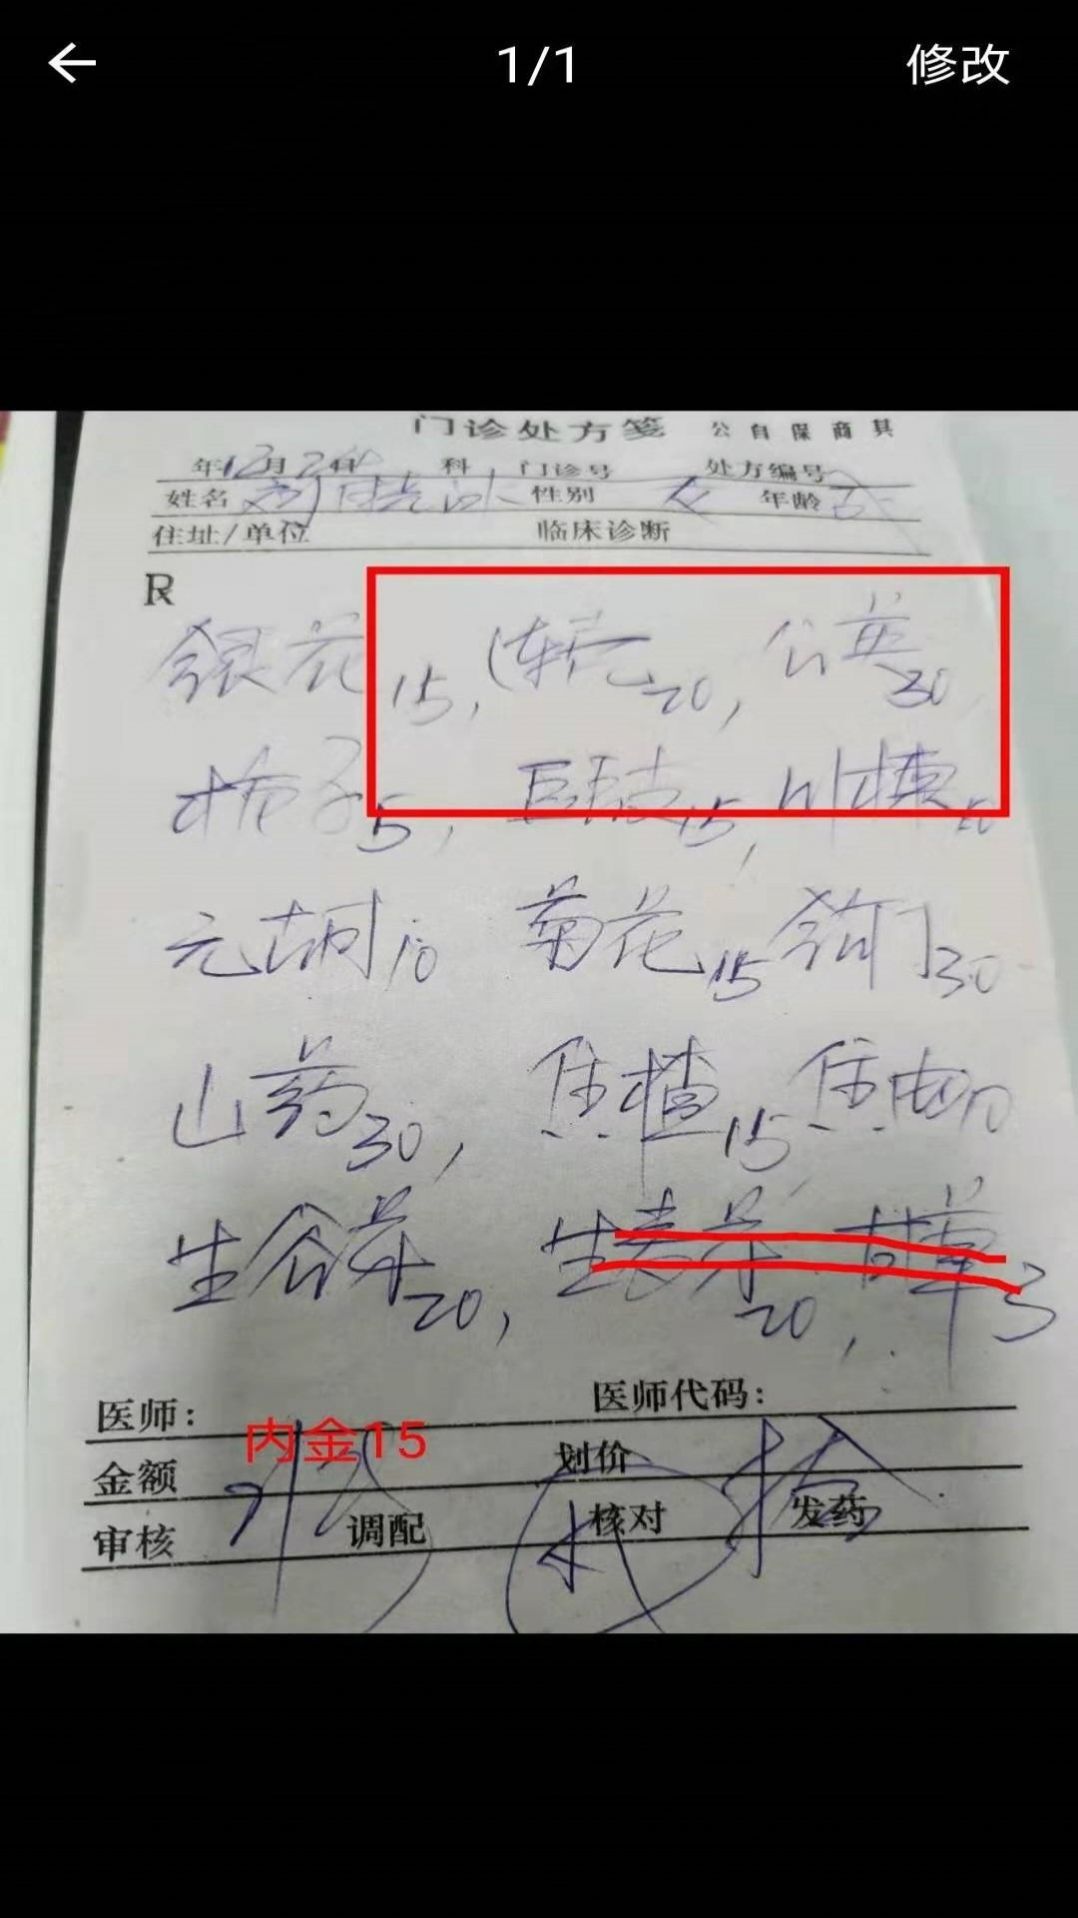 1/1 修改
门诊处方笺 公自保商其
年12月2 科 门诊号 处方编号
姓名 刘 性别 女 年龄
住址/单位 临床诊断
R
银花15, 连 20, 公英30
栀子5, 15, 川楝10
元胡10 菊花15 钩丁30
山药30, 焦楂15 焦曲10
生谷芽20, 生麦芽20, 甘草3
医师: 医师代码:
内金15
金额 划价
审核 调配 核对 发药